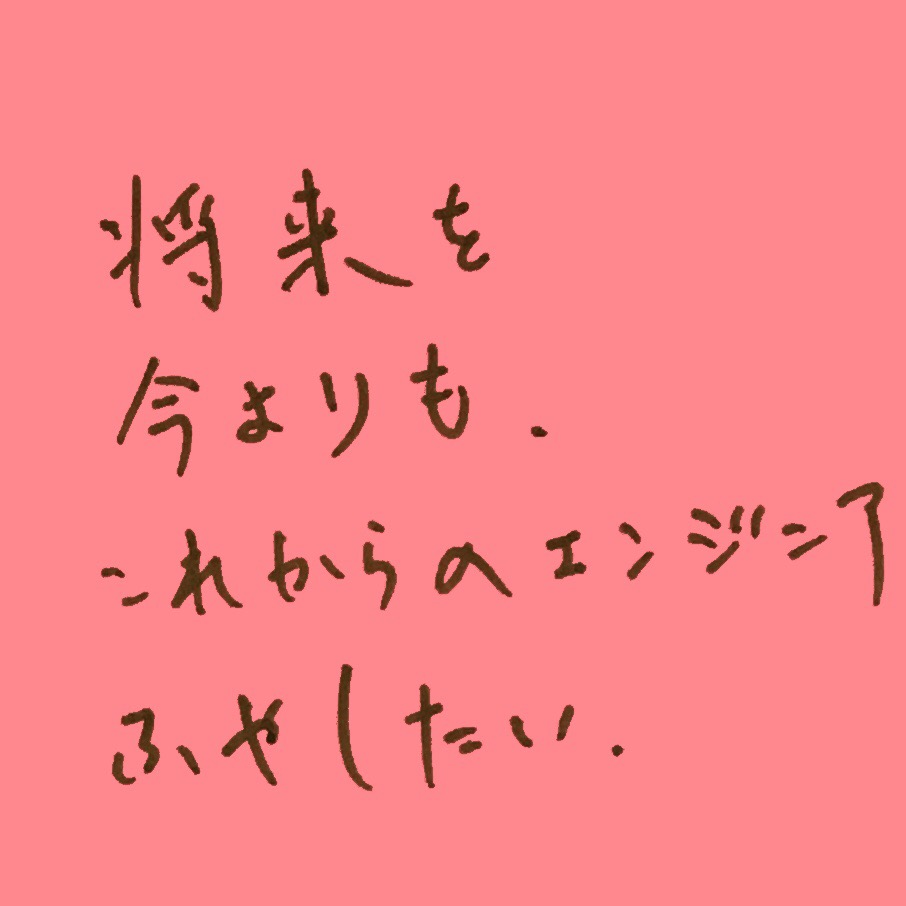 将来を
今よりも.
これからのエンジニア
ふやしたい.